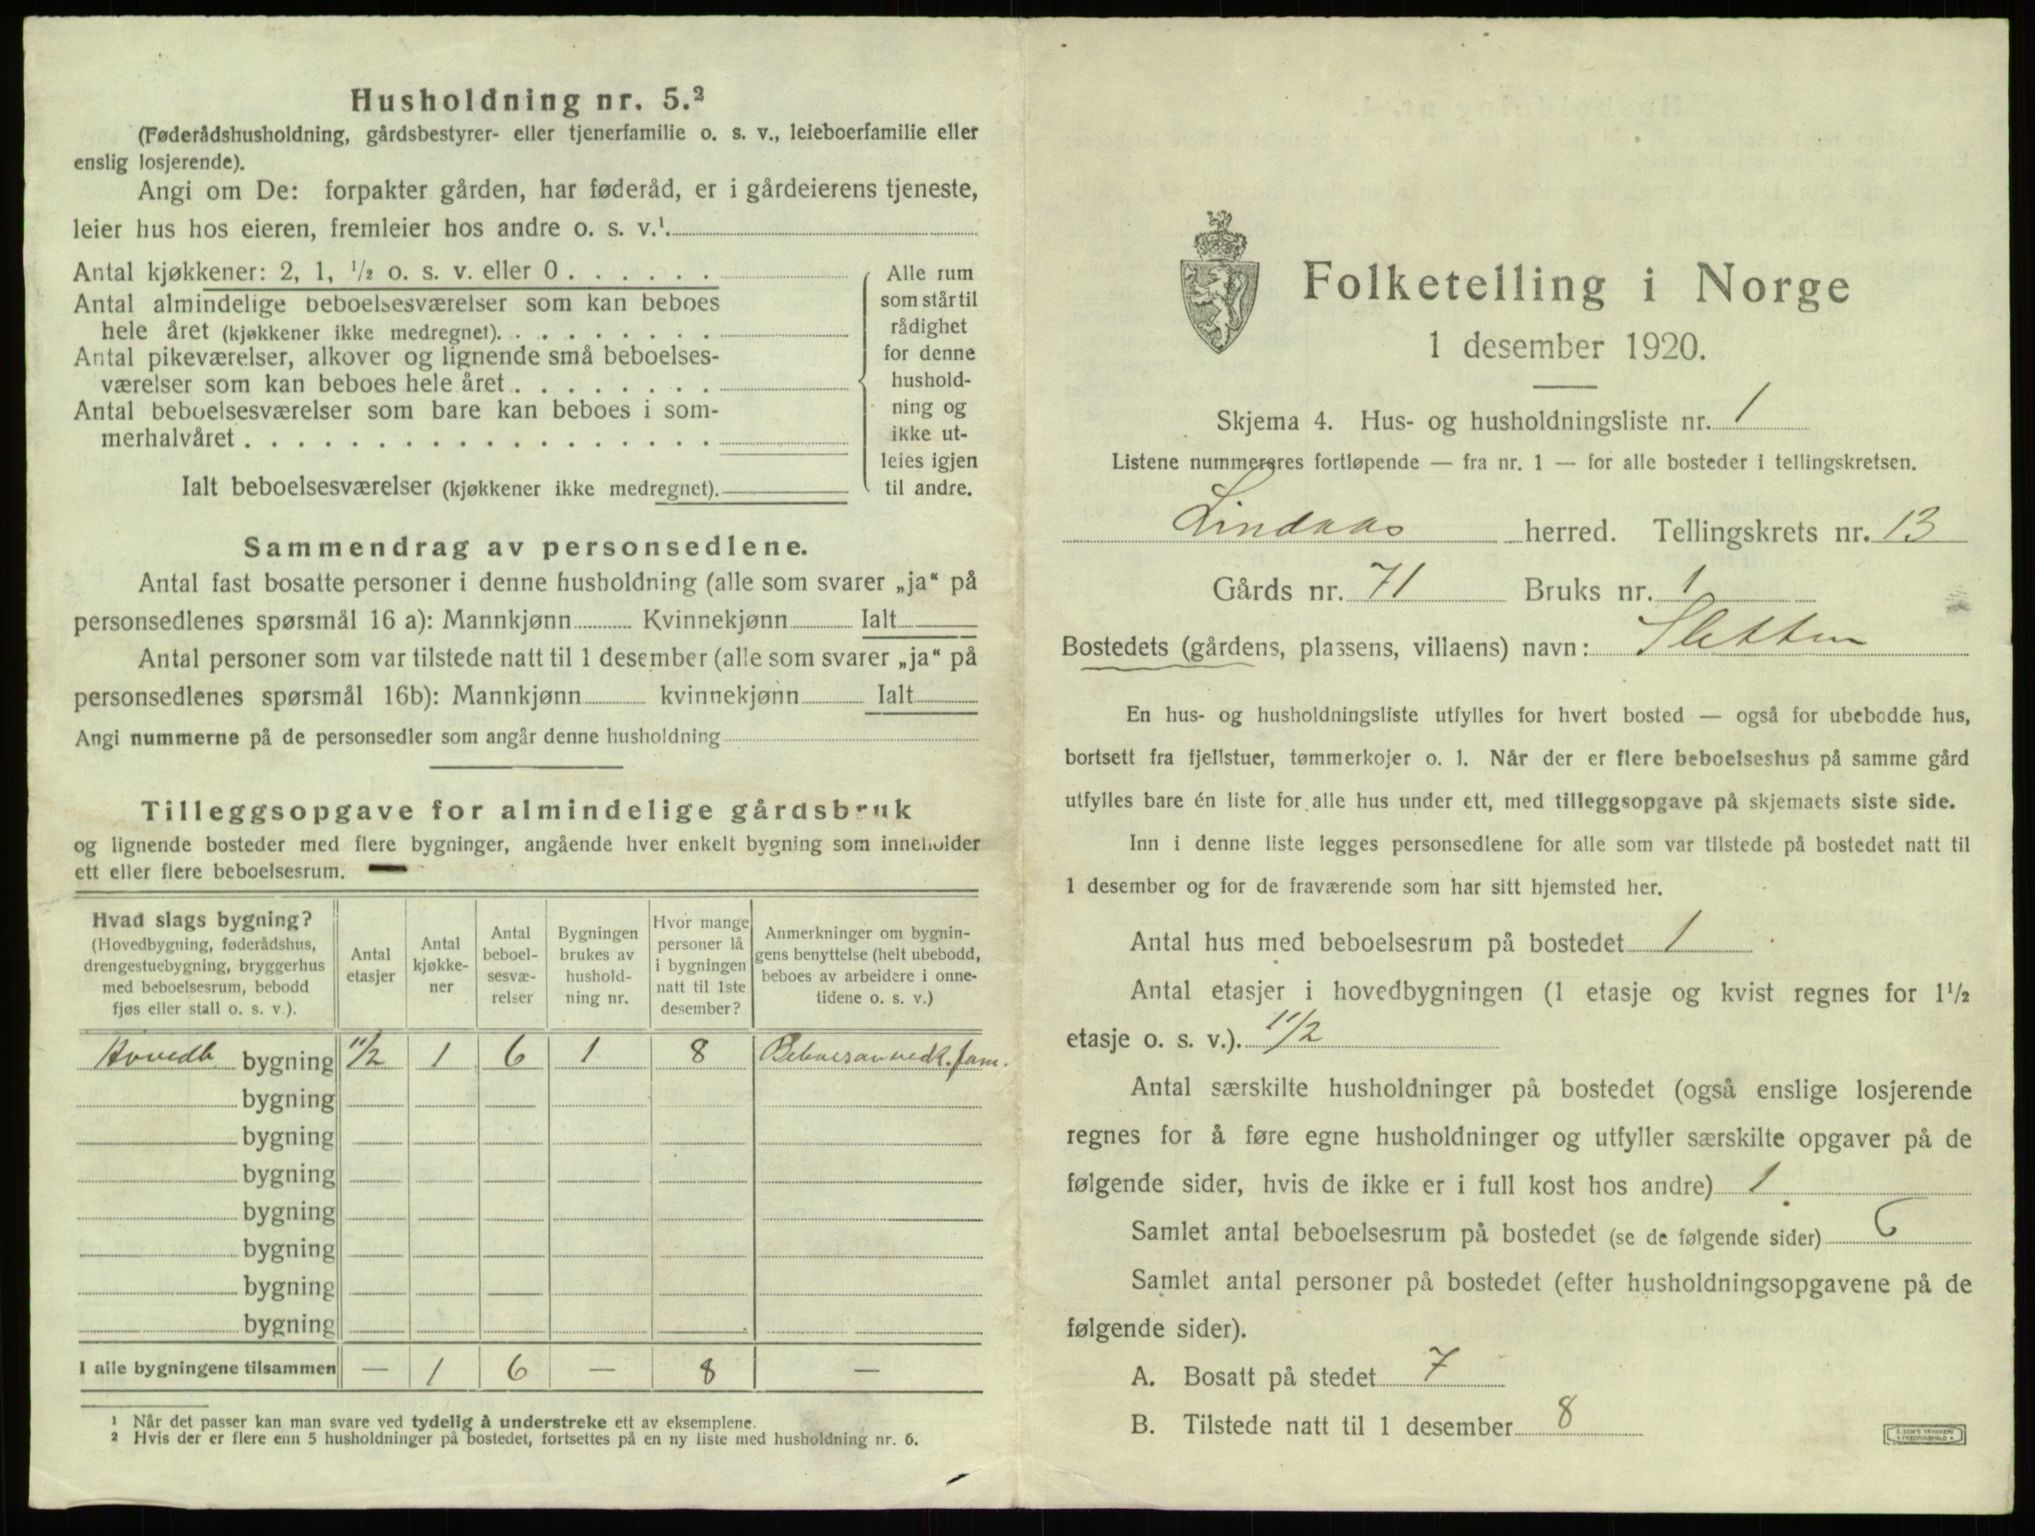 Husholdning nr. 5.²
(Føderådshusholdning, gårdsbestyrer- eller tjenerfamilie o. s. v., leieboerfamilie eller
enslig losjerende).
Angi om De: forpakter gården, har føderåd, er i gårdeierens tjeneste,
leier hus hos eieren, fremleier hos andre o. s. v.¹.
Antal kjøkkener: 2, 1, ½ o. s. v. eller 0 . . . . . .
Antal almindelige beboelsesværelser som kan beboes
hele året (kjøkkener ikke medregnet). . . . . . . . .
Antal pikeværelser, alkover og lignende små beboelses-
værelser som kan beboes hele året . . . . . . . .
Antal beboelsesværelser som bare kan beboes i som-
merhalvåret . . . . . . . . . . . . . . . . . .
Ialt beboelsesværelser (kjøkkener ikke medregnet).
Alle rum
som står til
rådighet
for denne
hushold-
ning og
ikke ut-
leies igjen
til andre.
Sammendrag av personsedlene.
Antal fast bosatte personer i denne husholdning (alle som svarer „ja“ på
personsedlenes spørsmål 16 a): Mannkjønn Kvinnekjønn Ialt
Antal personer som var tilstede natt til 1 desember (alle som svarer „ja“ på
personsedlenes spørsmål 16b): Mannkjønn kvinnekjønn Ialt
Angi nummerne på de personsedler som angår denne husholdning
Tilleggsopgave for almindelige gårdsbruk
og lignende bosteder med flere bygninger, angående hver enkelt bygning som inneholder
ett eller flere beboelsesrum.
Hvad slags bygning?
(Hovedbygning, føderådshus,
drengestuebygning, bryggerhus
med beboelsesrum, bebodd
fjøs eller stall o. s. v.).
Antal
etasjer
Antal
kjøkke-
ner
Antal
beboel-
sesvæ-
relser
Bygningen
brukes av
hushold-
ning nr.
Hvor mange
personer lå
i bygningen
natt til 1ste
desember?
Anmerkninger om bygnin-
gens benyttelse (helt ubebodd,
beboes av arbeidere i onne-
tidene o. s. v.)
Hovedb. bygning 1½ 1 6 1 8
bygning
bygning
bygning
bygning
bygning
bygning
bygning
I alle bygningene tilsammen — 1 6 — 8 —
¹ Når det passer kan man svare ved tydelig å understreke ett av eksemplene.
² Hvis der er flere enn 5 husholdninger på bostedet, fortsettes på en ny liste med husholdning nr. 6.
Folketelling i Norge
1 desember 1920.
Skjema 4. Hus- og husholdningsliste nr. 1
Listene nummereres fortløpende — fra nr. 1 — for alle bosteder i tellingskretsen.
Lindaas herred. Tellingskrets nr. 13
Gårds nr. 71 Bruks nr. 1
Bostedets (gårdens, plassens, villaens) navn: Sletten
En hus- og husholdningsliste utfylles for hvert bosted — også for ubebodde hus,
bortsett fra fjellstuer, tømmerkojer o. l. Når der er flere beboelseshus på samme gård
utfylles bare én liste for alle hus under ett, med tilleggsopgave på skjemaets siste side.
Inn i denne liste legges personsedlene for alle som var tilstede på bostedet natt til
1 desember og for de fraværende som har sitt hjemsted her.
Antal hus med beboelsesrum på bostedet 1
Antal etasjer i hovedbygningen (1 etasje og kvist regnes for 1½
etasje o. s. v.). 1½
Antal særskilte husholdninger på bostedet (også enslige losjerende
regnes for å føre egne husholdninger og utfyller særskilte opgaver på de
følgende sider, hvis de ikke er i full kost hos andre) 1
Samlet antal beboelsesrum på bostedet (se de følgende sider) 6
Samlet antal personer på bostedet (efter husholdningsopgavene på de
følgende sider).
A. Bosatt på stedet 7
B. Tilstede natt til 1 desember 8